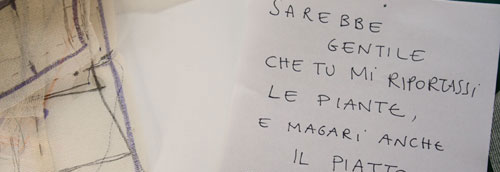 SAREBBE
GENTILE
CHE TU MI RIPORTASSI
LE PIANTE,
E MAGARI ANCHE
IL PIATTO